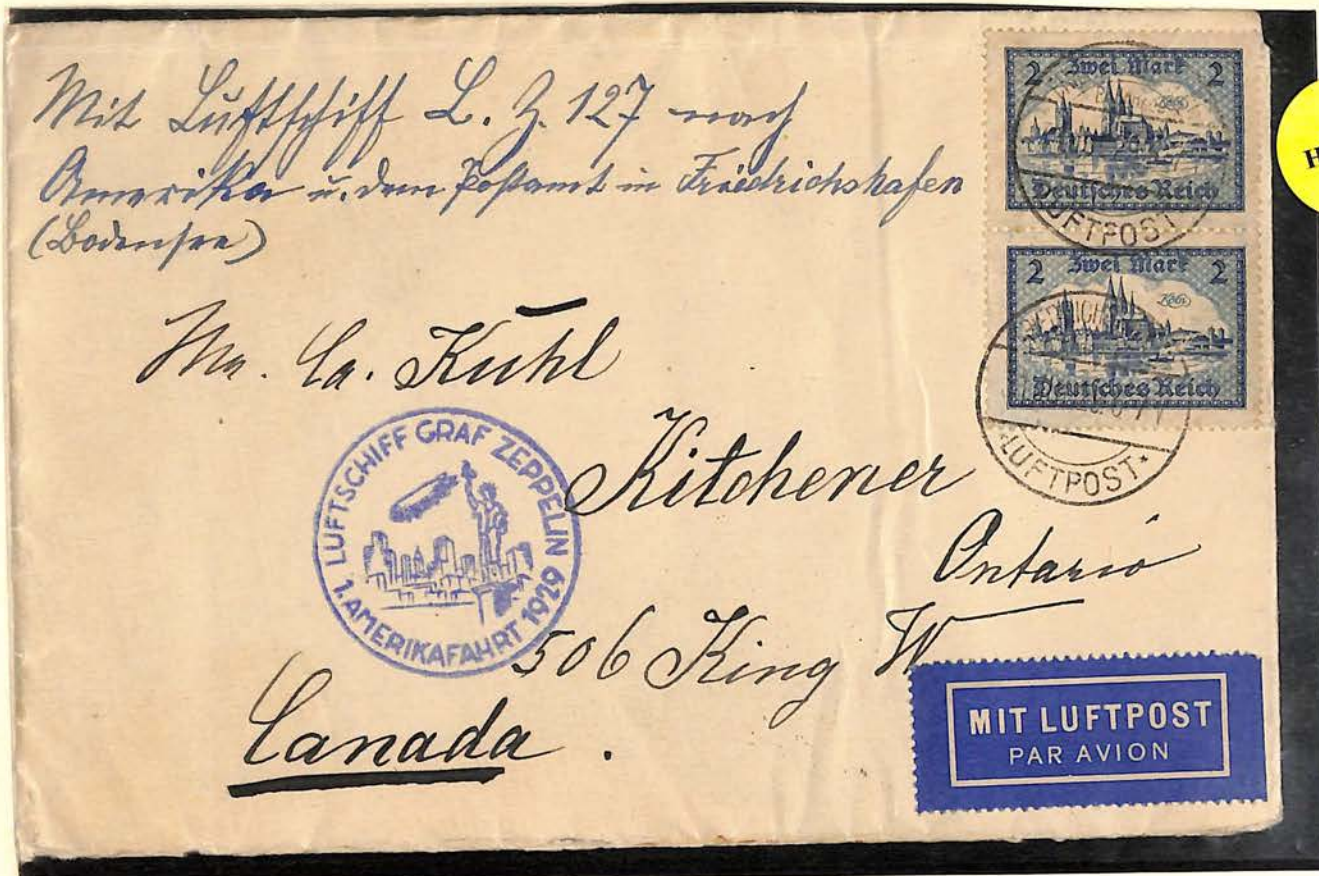 Mit Luftschiff L. Z. 127 nach
Amerika u. dem Postamt in Friedrichshafen
(Bodensee)
2 Zwei Mark 2
Köln
Deutsches Reich
LUFTPOST
2 Zwei Mark 2
Köln
Deutsches Reich
LUFTPOST
Kuhl
Kitchener
Ontario
506 King W
Canada.
LUFTSCHIFF GRAF ZEPPELIN
1. AMERIKAFAHRT 1929
MIT LUFTPOST
PAR AVION
H